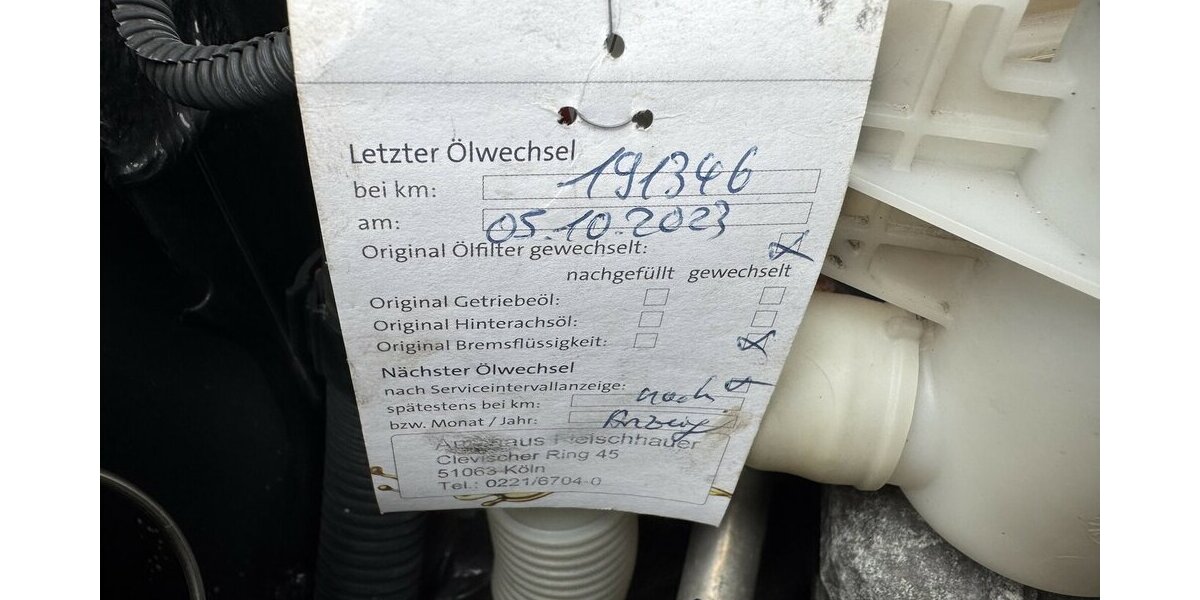 Letzter Ölwechsel
bei km: 191346
am: 05.10.2023
Original Ölfilter gewechselt:
nachgefüllt gewechselt
Original Getriebeöl:
Original Hinterachsöl:
Original Bremsflüssigkeit:
Nächster Ölwechsel
nach Serviceintervallanzeige:
spätestens bei km: nach
bzw. Monat / Jahr: Anzeige
Autohaus Fleischhauer
Clevischer Ring 45
51063 Köln
Tel.: 0221/6704-0